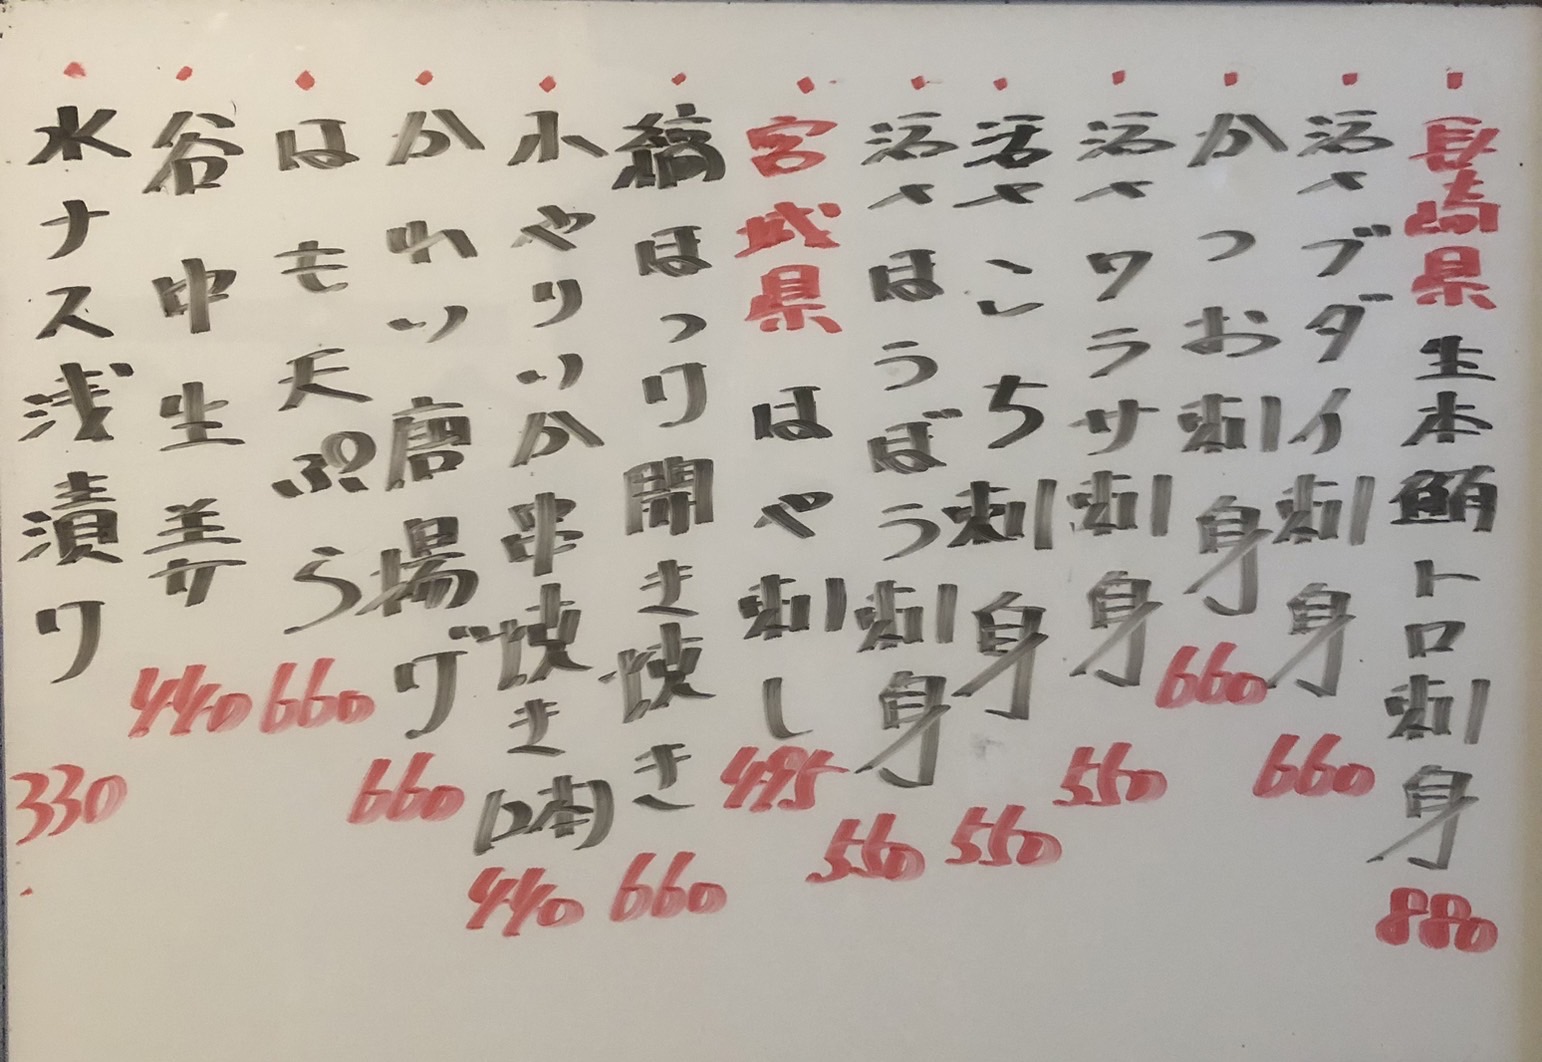 長崎県生本鮪トロ刺身 880
活〆ブダイ刺身 660
かつお刺身 660
活〆ワラサ刺身 550
活〆こち刺身 550
活〆ほうぼう刺身 550
宮城県ほや刺し 495
縞ほっけ開き焼き 660
小やりいか串焼き(2本) 440
かれい唐揚げ 660
はも天ぷら 660
谷中生姜 440
水ナス浅漬け 330